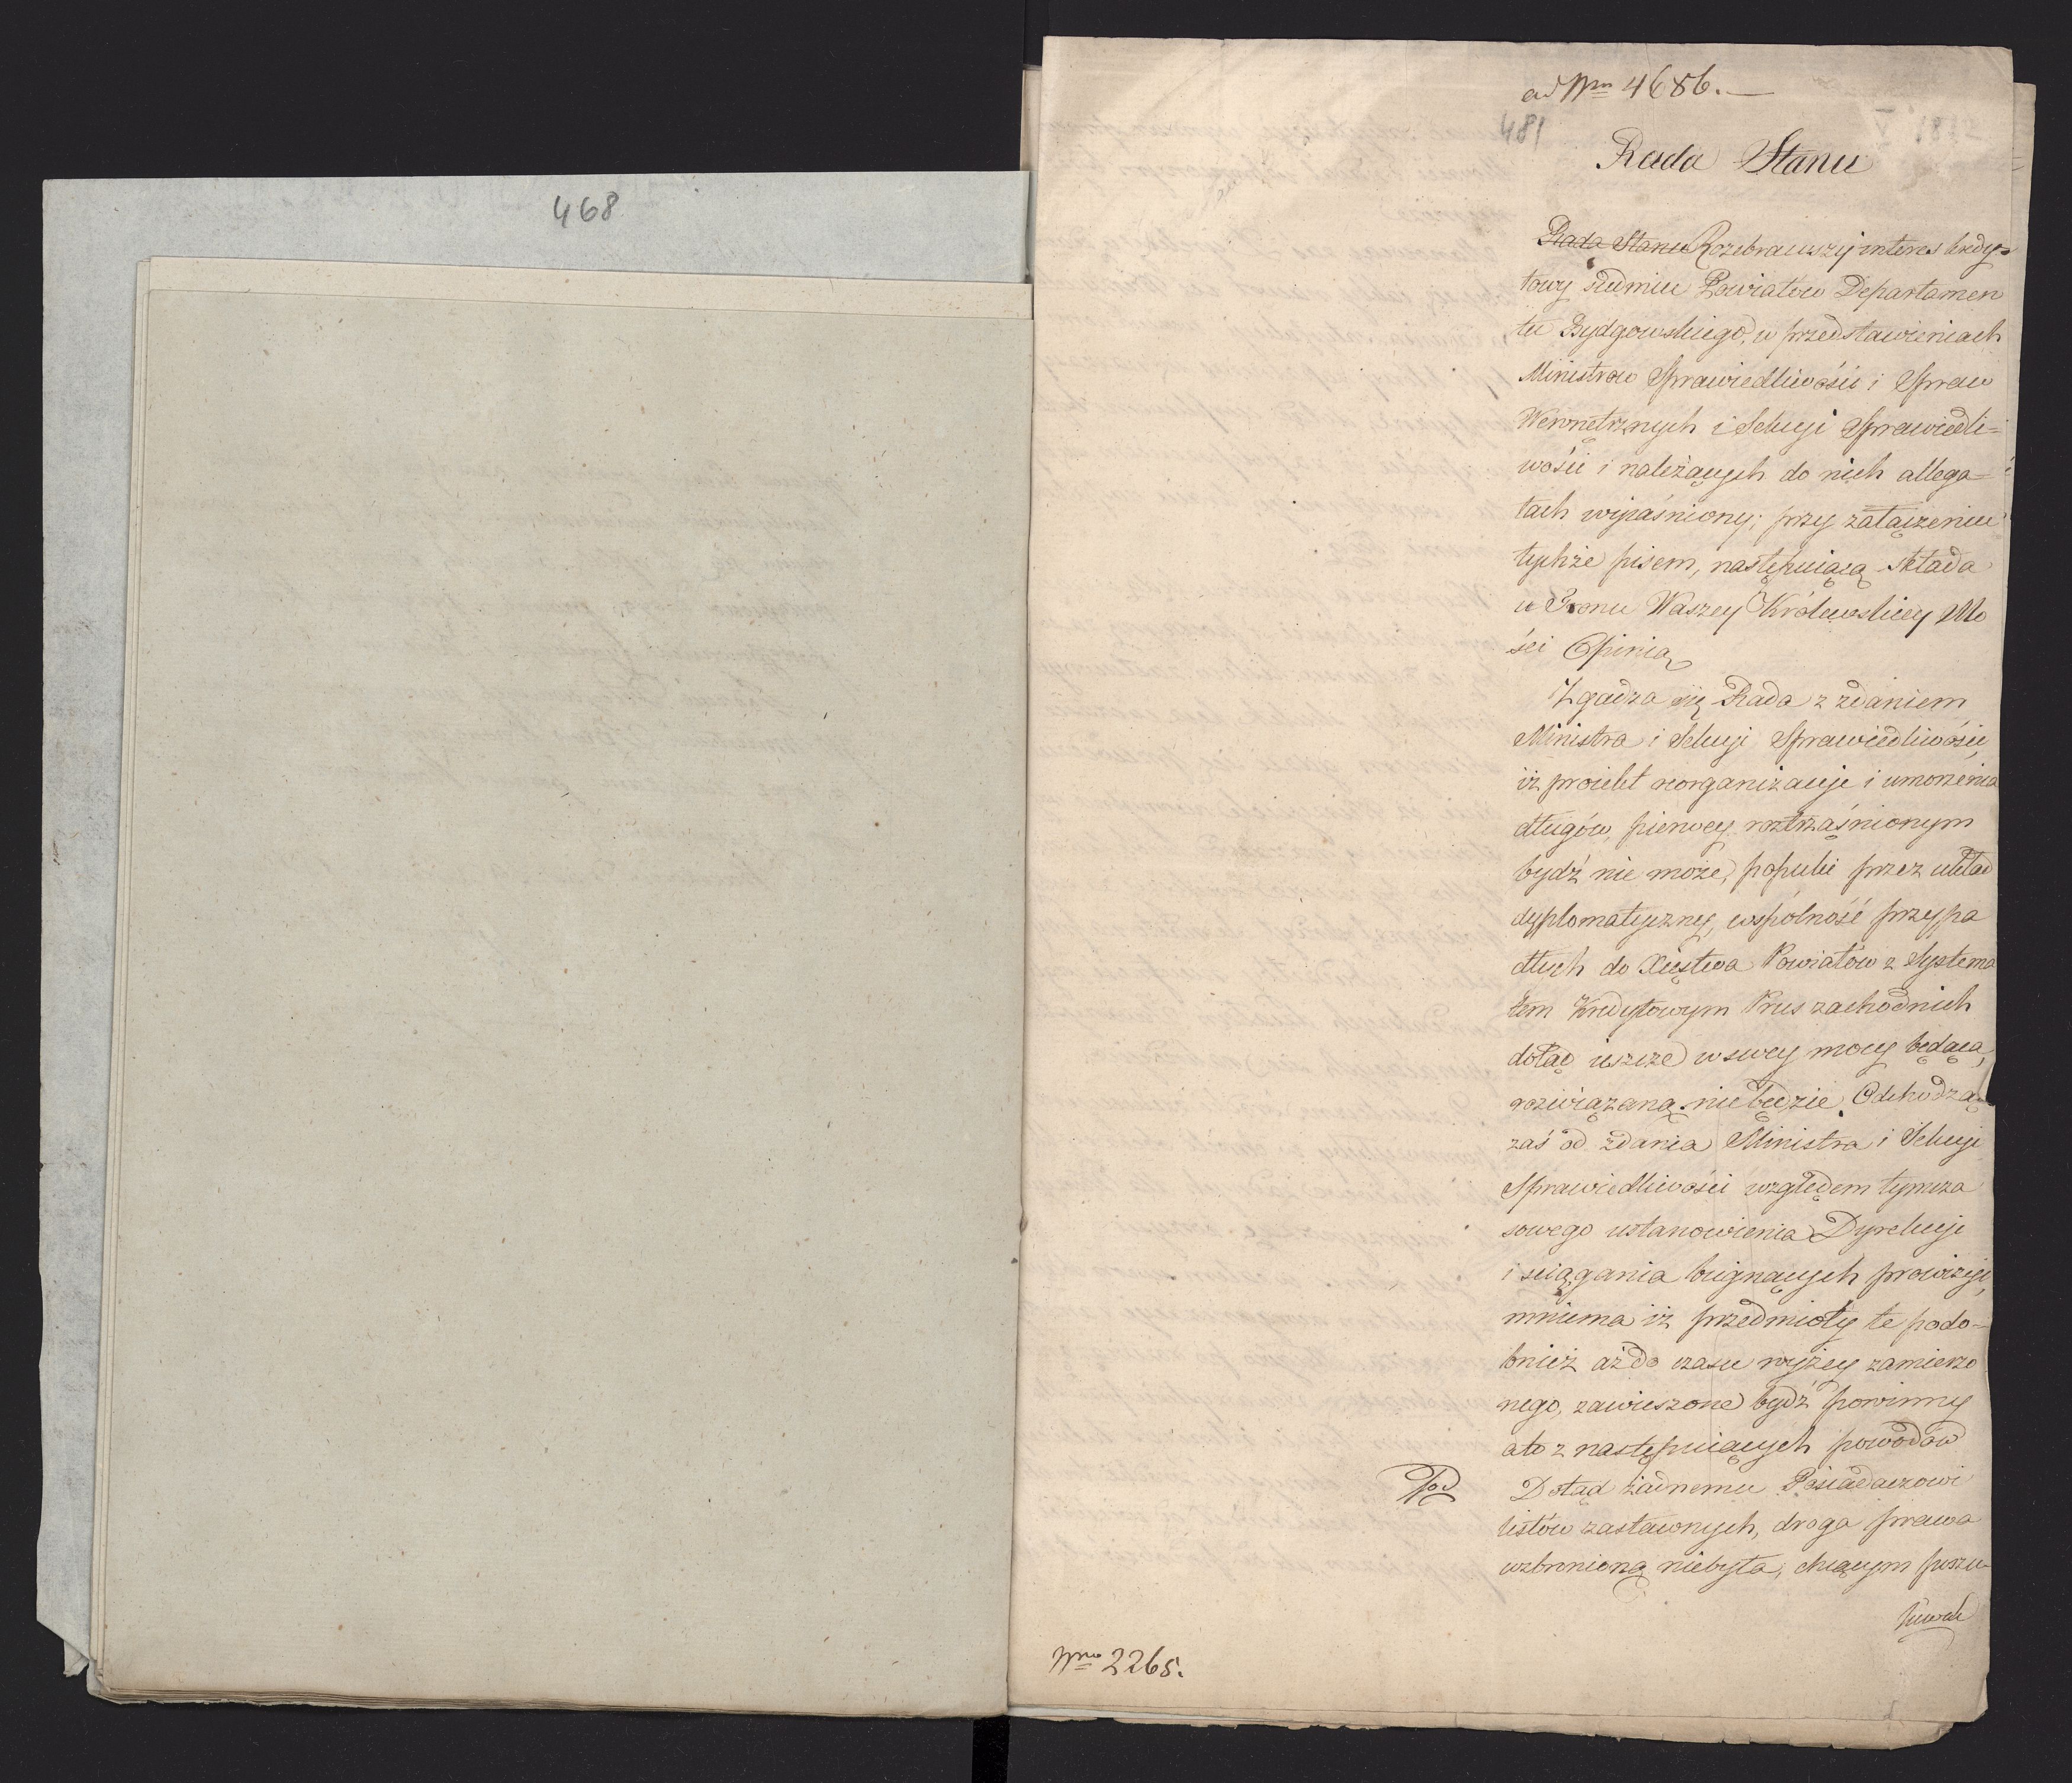 468
ad Nro 4686.
481
Rada Stanu
Rada Stanu Rozebrawszy interes kredy-
towy siedmiu Powiatow Departamen
tu Bydgowskiego, w przedstawieniach
Ministrow Sprawiedliwości i Spraw
Wewnętrznych i Sekcyi Sprawiedli=
wości i należących do nich allega=
tach wyjaśniony; przy załączeniu
tychże pisem, następuiącą składa
u Tronu Waszey Królewskiey Mo
ści Opinią
Zgadza się Rada z zdaniem
Ministra i Sekcyi Sprawiedliwości,
iż proiekt reorganizacyi i umorzenia
długów, pierwey roztrząśnionym
bydź nie może, popóki przez układ
dyplomatyczny, wspólność przypa
dłych do Xięstwa Powiatów z Systema
tem Kredytowym Prus zachodnich
dotąd ieszcze w swey mocy będąca,
rozwiązaną nie będzie. Odchodząc
zaś od zdania Ministra i Sekcyi
Sprawiedliwości względem tymcza
sowego ustanowienia Dyrekcyi
i sciągania biegnących prowizyi,
mniema iż przedmioty te podo-
bnież aż do czasu wyżey zamierzo
nego, zawieszone bydź powinny
a to z następuiących powodów
Dotąd żadnemu Posiadaczowi
listów zastawnych, droga prawa
wzbronioną niebyła; chcącym poszu-
kiwać
Nro 2265.